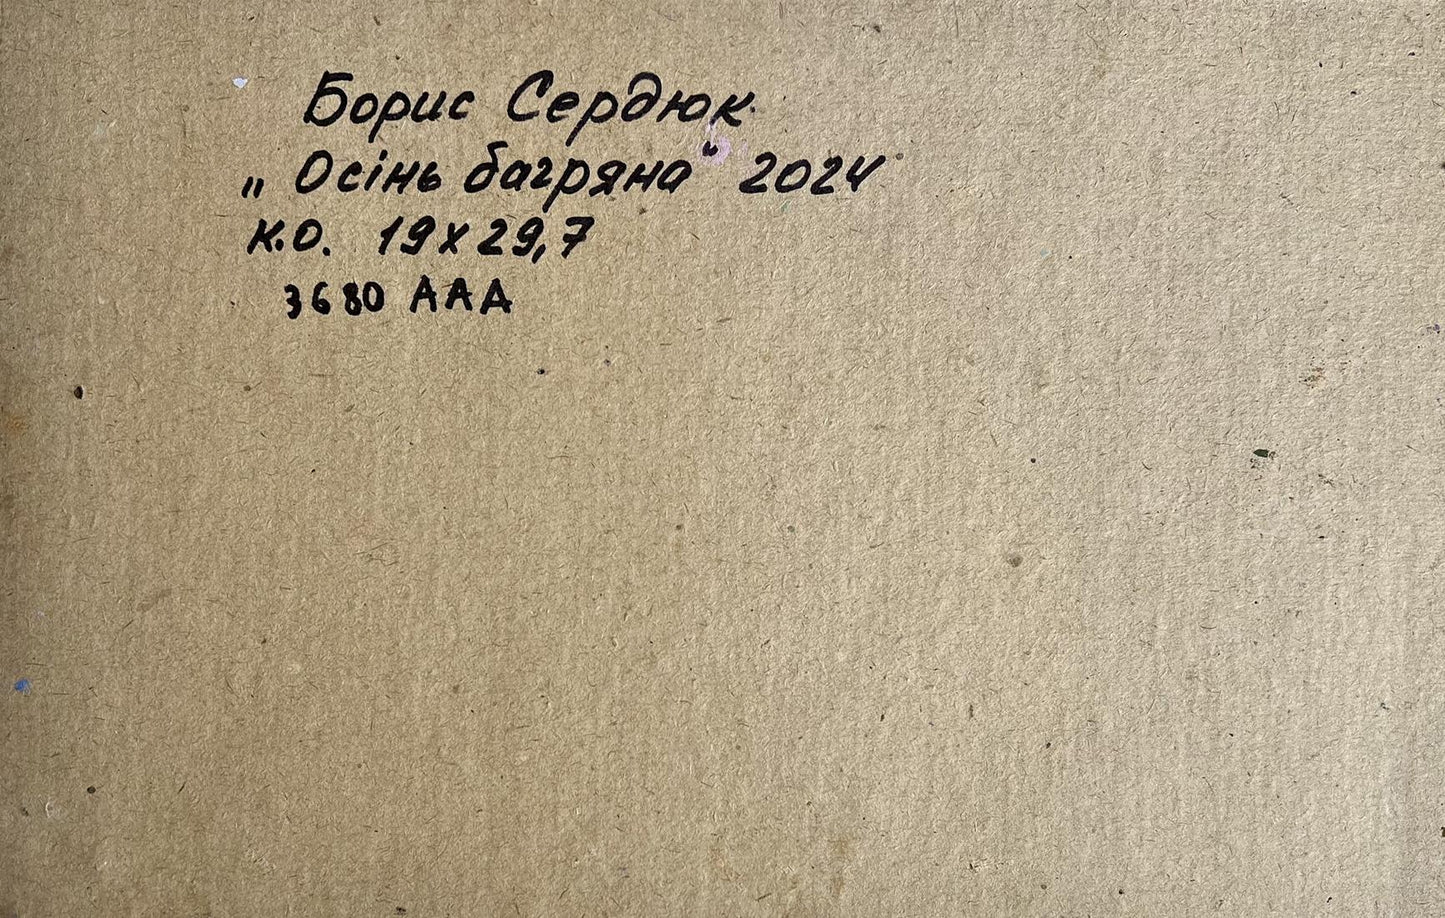 Борис Сердюк
„Осінь багряна“ 2024
к.о. 19х29,7
3680 ААА